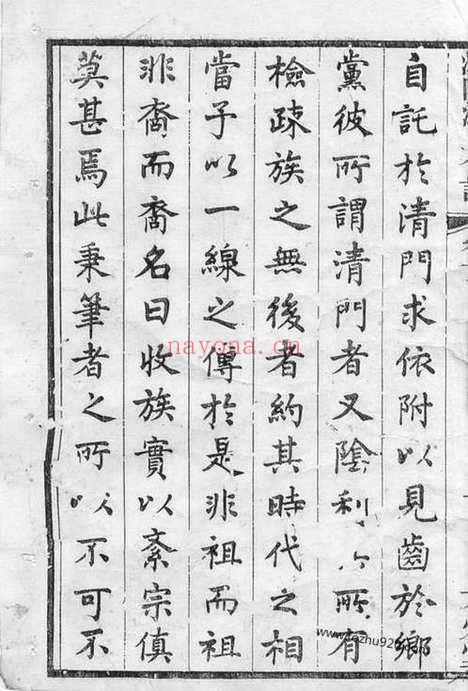 自託於清門求依附以見齒於鄉
黨彼所謂清門者又陰利其所有
檢疎族之無後者約其時代之相
當予以一線之傳於是非祖而祖
非裔而裔名曰收族實以紊宗傎
莫甚焉此秉筆者之所以不可不
nayona.cn